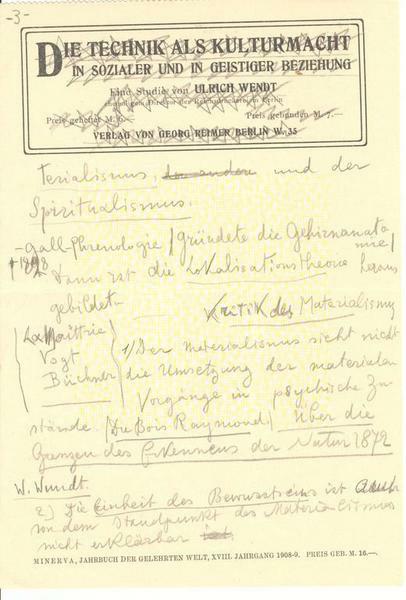 -3-
DIE TECHNIK ALS KULTURMACHT
IN SOZIALER UND IN GEISTIGER BEZIEHUNG
Eine Studie von ULRICH WENDT
Preis geheftet M. 6.— Preis gebunden M. 7.—
VERLAG VON GEORG REIMER BERLIN W. 35
terialismus, und der
Spiritualismus.
- Gall-Phrenologie / gründete die Gehirnanatomie /
+1828 Dann ist die Lokalisationstheorie heraus
gebildet.
Kritik des Materialismus
LaMettrie
Vogt
Büchner
1) Der Materialismus sieht nicht
die Umsetzung der materialen
Vorgänge in psychische Zu
stände. (Du Bois Raymond) Über die
Grenzen des Erkennens der Natur 1872
W. Wundt.
2) Die Einheit des Bewusstseins ist auch
von dem Standpunkt des Materialismus
nicht erklärbar ist.
MINERVA, JAHRBUCH DER GELEHRTEN WELT, XVIII. JAHRGANG 1908-9. PREIS GEB. M. 16.—.